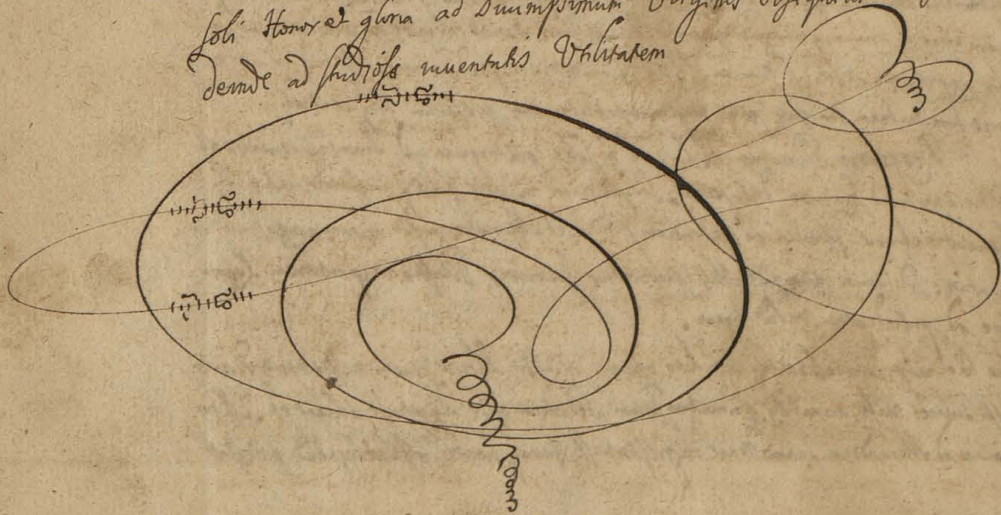 soli Honor et gloria ad Divinissimum Virginis
deinde ad studiosæ iuventutis Utilitatem